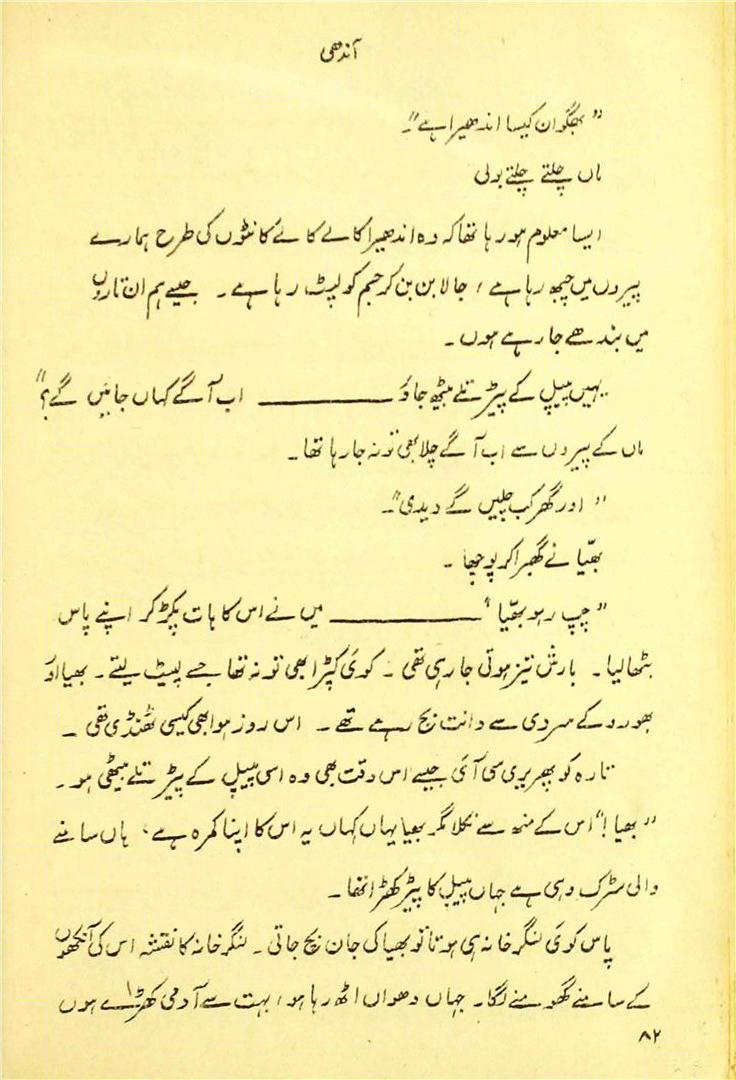 آندھی
"بھگوان کیسا اندھیرا ہے"۔
ماں چلتے چلتے بولی
ایسا معلوم ہو رہا تھا کہ وہ اندھیرا کالے کالے کانٹوں کی طرح ہمارے
پیروں میں چبھ رہا ہے، جالا بن بن کر جسم کو لپٹ رہا ہے۔ جیسے ہم ان تاروں
میں بندھے جا رہے ہوں۔
یہیں پیپل کے پیڑ تلے بیٹھ جاؤ ــــــــــ اب آگے کہاں جائیں گے؟"
ماں کے پیروں سے اب آگے چلا بھی تو نہ جا رہا تھا۔
"اور گھر کب چلیں گے دیدی"۔
بھیّا نے گھبرا کر پوچھا۔
"چپ رہو بھیّا" ــــــــــ میں نے اس کا ہات پکڑ کر اپنے پاس
بٹھا لیا۔ بارش تیز ہوتی جا رہی تھی۔ کوئی کپڑا بھی تو نہ تھا جسے لپیٹ لیتے۔ بھیا اور
بھورو کے سردی سے دانت بج رہے تھے۔ اس روز ہوا بھی کیسی ٹھنڈی تھی۔
تارہ کو پھریری سی آئی جیسے اس وقت بھی وہ اسی پیپل کے پیڑ تلے بیٹھی ہو۔
"بھیا!" اس کے منھ سے نکلا مگر بھیا یہاں کہاں یہ اس کا اپنا کمرہ ہے، ہاں سامنے
والی سڑک وہی ہے جہاں پیپل کا پیڑ کھڑا تھا۔
پاس کوئی لنگر خانہ ہی ہوتا تو بھیا کی جان بچ جاتی۔ لنگر خانہ کا نقشہ اس کی آنکھوں
کے سامنے گھومنے لگا۔ جہاں دھواں اٹھ رہا ہو، بہت سے آدمی کھڑے ہوں
۸۲